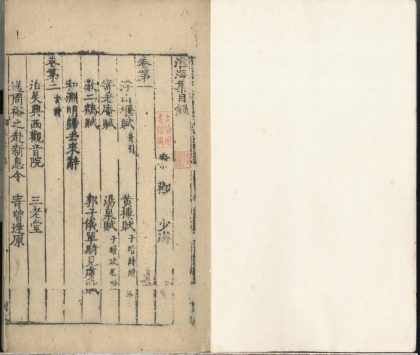 淮海集目録
秦觀 少游
卷第一
浮山堰賦 并引 黃樓賦
寄老庵賦 湯泉賦
歎二鶴賦 郭子儀單騎見虜賦
和淵明歸去來辭
卷第二 古詩
泊吳興西觀音院 三老堂
送周裕之赴新息令 寄曾逢原